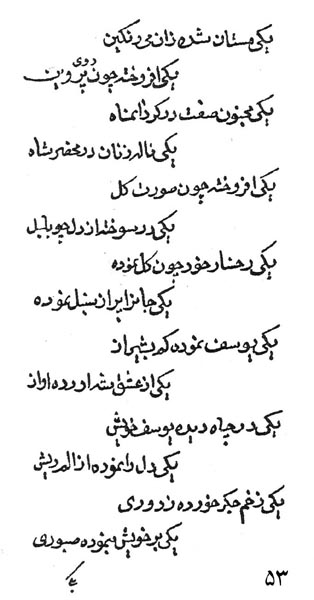 یکی مستان شده زان می رنگین
یکی افروخته چون روی پروین
یکی مجنون صفت در کرد آنماه
یکی ناله زنان در محضر شاه
یکی افروخته چون صورت کل
یکی در سوخته از دل چو بلبل
یکی رخسار خود چون کل نموده
یکی جانرا بران سنبل نموده
یکی یوسف نموده
یکی از عشق شد اورده اواز
یکی در چاه دیده یوسف خویش
یکی دل را نموده از الم ریش
یکی زخم جکر خورده ز دوری
یکی بر خویش بنموده صبوری
یکی
۵۳